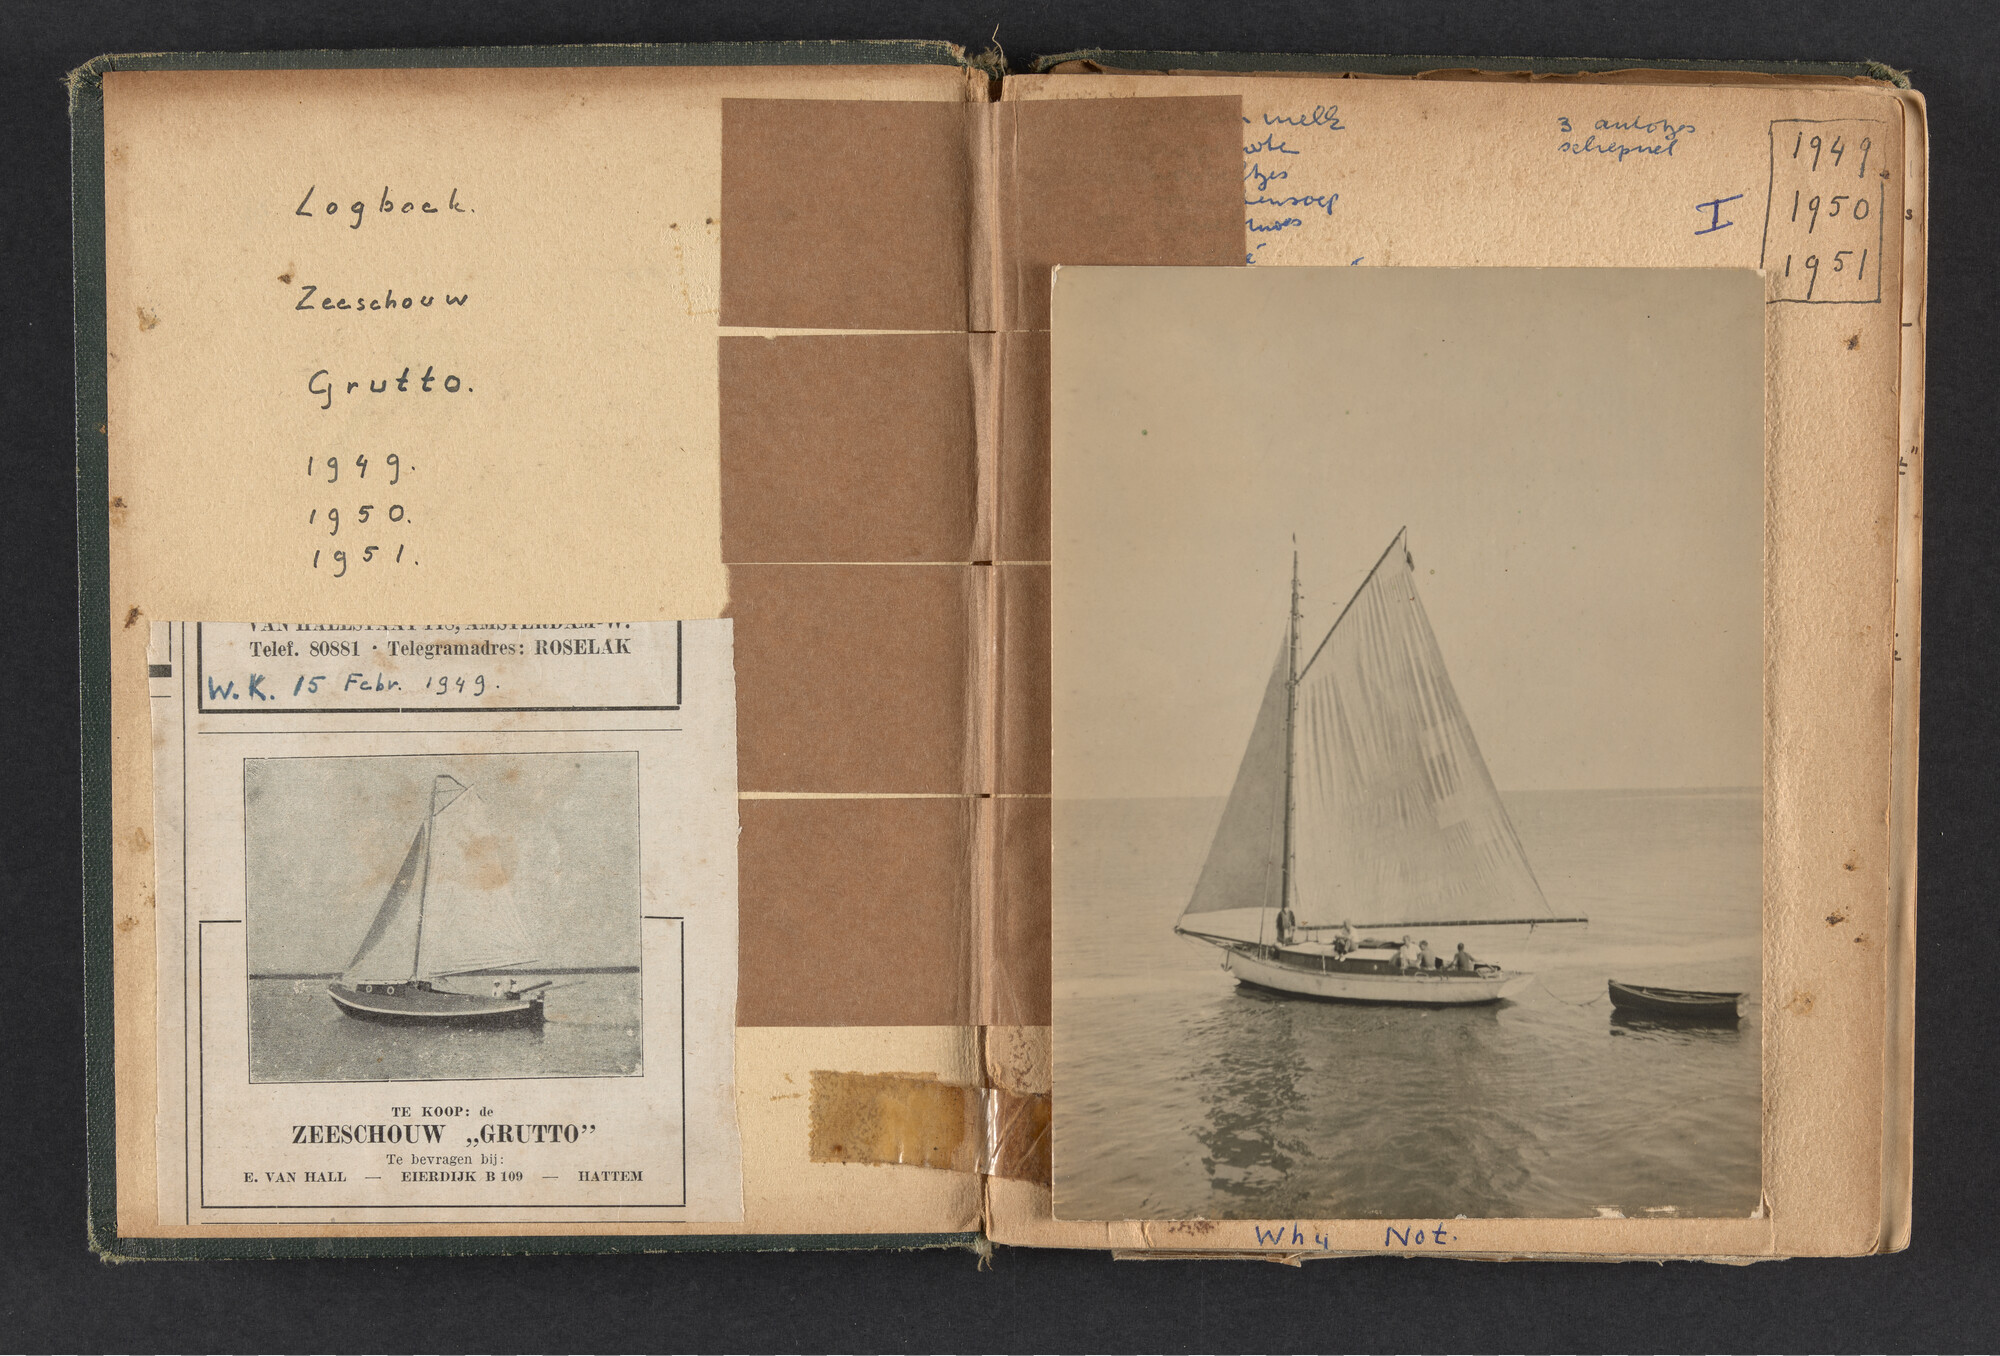 Logboek.
Zeeschouw
Grutto.
1949.
1950.
1951.
VAN HALLSTRAAT 118, AMSTERDAM-W.
Telef. 80881 · Telegramadres: ROSELAK
W.K. 15 Febr. 1949.
TE KOOP: de
ZEESCHOUW „GRUTTO”
Te bevragen bij:
E. VAN HALL — EIERDIJK B 109 — HATTEM
melk
3 autotjes
schepnet
I
1949.
1950
1951
Why Not.